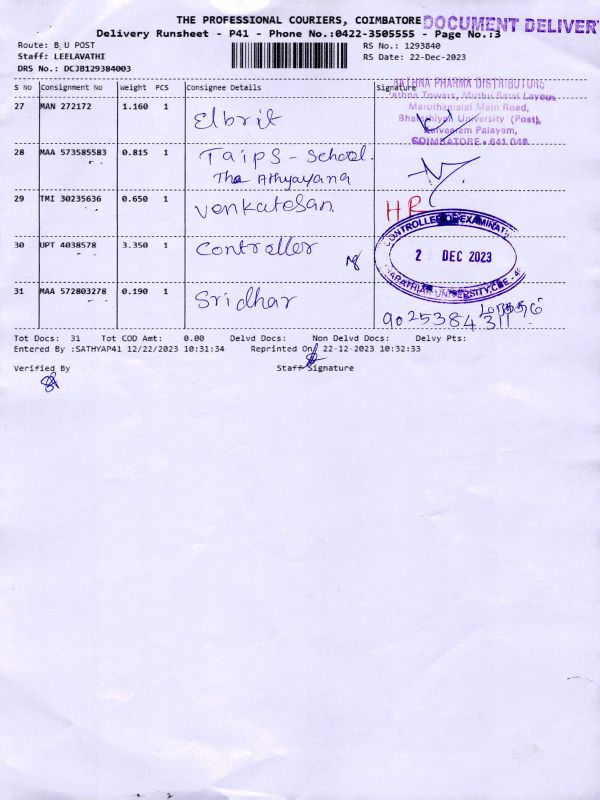 THE PROFESSIONAL COURIERS, COIMBATORE
DOCUMENT DELIVER
Delivery Runsheet - P41 - Phone No.:0422-3505555 - Page No.:3
Route: B U POST
RS No.: 1293840
Staff: LEELAVATHI
RS Date: 22-Dec-2023
DRS No.: DCJB129384003
S No Consignment No Weight PCS Consignee Details Signature
RATHNA PHARMA DISTRIBUTORS
Rathna Towers, Muthu Layout
Maruthamalai Main Road,
Bharathiyar University (Post),
Kalveeram Palayam,
COIMBATORE - 641 046
27 MAN 272172 1.160 1 Elbrit
28 MAA 573585583 0.815 1 Taips - School.
The Athyayana
29 TMI 30235636 0.650 1 Venkatesan HR
30 UPT 4038578 3.350 1 Controller
CONTROLLER OF EXAMINATI
22 DEC 2023
BHARATHIAR UNIVERSITY, CBE - 46
31 MAA 572803278 0.190 1 Sridhar
9025384311
Tot Docs: 31 Tot COD Amt: 0.00 Delvd Docs: Non Delvd Docs: Delvy Pts:
Entered By :SATHYAP41 12/22/2023 10:31:34 Reprinted On 22-12-2023 10:32:33
Verified By Staff Signature